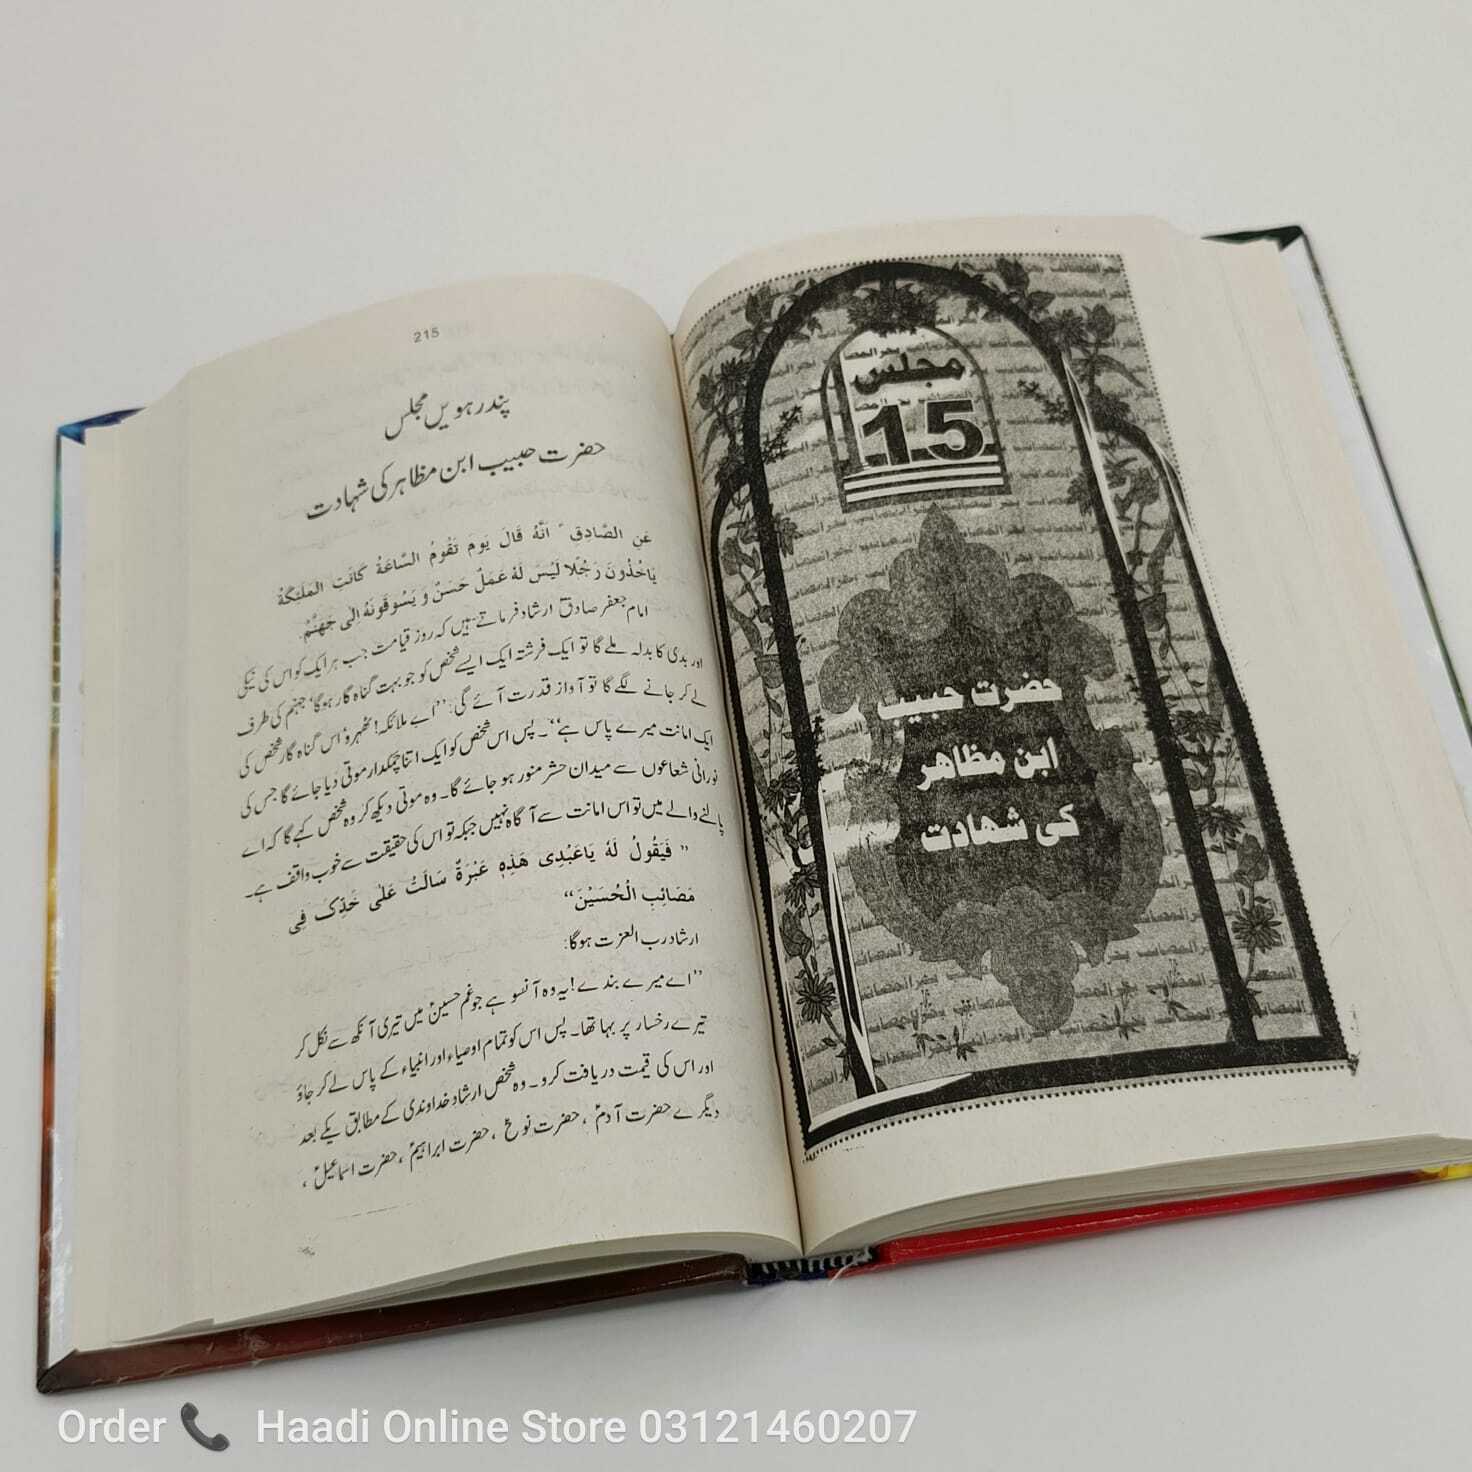 مجلس
15
حضرت حبیب
ابن مظاہر
کی شہادت
215
پندرہویں مجلس
حضرت حبیب ابن مظاہر کی شہادت
عَنِ الصَّادِق ؑ اَنَّهُ قَالَ يَومَ تَقُومُ السَّاعَةُ كَانَتِ المَلٰئِكَةُ
يَاخُذُونَ رَجُلًا لَيْسَ لَهُ عَمَلٌ حَسَنٌ وَ يَسُوقُونَهُ اِلٰی جَهَنَّمَ.
امام جعفر صادقؑ ارشاد فرماتے ہیں کہ روز قیامت جب ہر ایک کو اس کی نیکی
اور بدی کا بدلہ ملے گا تو ایک فرشتہ ایک ایسے شخص کو جو بہت گناہ گار ہوگا‘ جہنم کی طرف
لے کر جانے لگے گا تو آواز قدرت آئے گی: ’’اے ملائکہ! ٹھہرو‘ اس گناہ گار شخص کی
ایک امانت میرے پاس ہے‘‘۔ پس اس شخص کو ایک اتنا چمکدار موتی دیا جائے گا جس کی
نورانی شعاعوں سے میدان حشر منور ہو جائے گا۔ وہ موتی دیکھ کر وہ شخص کہے گا کہ اے
پالنے والے میں تو اس امانت سے آگاہ نہیں جبکہ تو اس کی حقیقت سے خوب واقف ہے۔
’’ فَيَقُولُ لَهُ يَاعَبْدِی هَذِهِ عَبْرَةٌ سَالَتْ عَلٰی خَدِّکَ فِی
مَصَائِبِ الْحُسَيْنَ‘‘
ارشاد رب العزت ہوگا:
’’اے میرے بندے! یہ وہ آنسو ہے جو غم حسینؑ میں تیری آنکھ سے نکل کر
تیرے رخسار پر بہا تھا۔ پس اس کو تمام اوصیاء اور انبیاء کے پاس لے کر جاؤ
اور اس کی قیمت دریافت کرو۔ وہ شخص ارشاد خداوندی کے مطابق یکے بعد
دیگرے حضرت آدمؑ ، حضرت نوحؑ ، حضرت ابراہیمؑ ، حضرت اسماعیلؑ ،
Order 📞 Haadi Online Store 03121460207